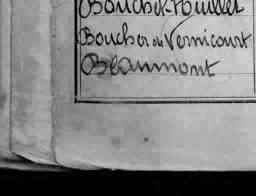 Bouchet-Huillet
Boucher de Vernicourt
Beaumont